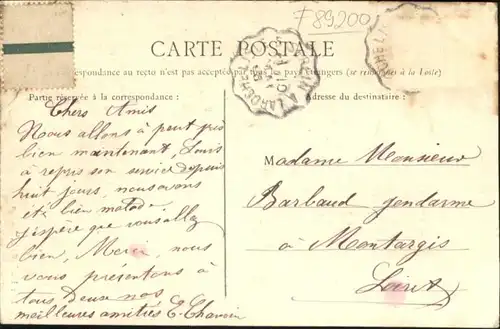 F 89200
CARTE POSTALE
La Correspondance au recto n'est pas acceptée par tous les pays étrangers (se renseigner à la Poste)
Partie réservée à la correspondance:
Adresse du destinataire:
Chers Amis
Nous allons à peut près
bien maintenant, Louis
à repris son service depuis
huit jours, nous avons
été bien malade.
j'éspère que vous allez
bien, Merci, nous
vous présentons à
tous deux nos
meilleures amitiés E. Chanoin
Madame Monsieur
Barbaud gendarme
à Montargis
Loiret